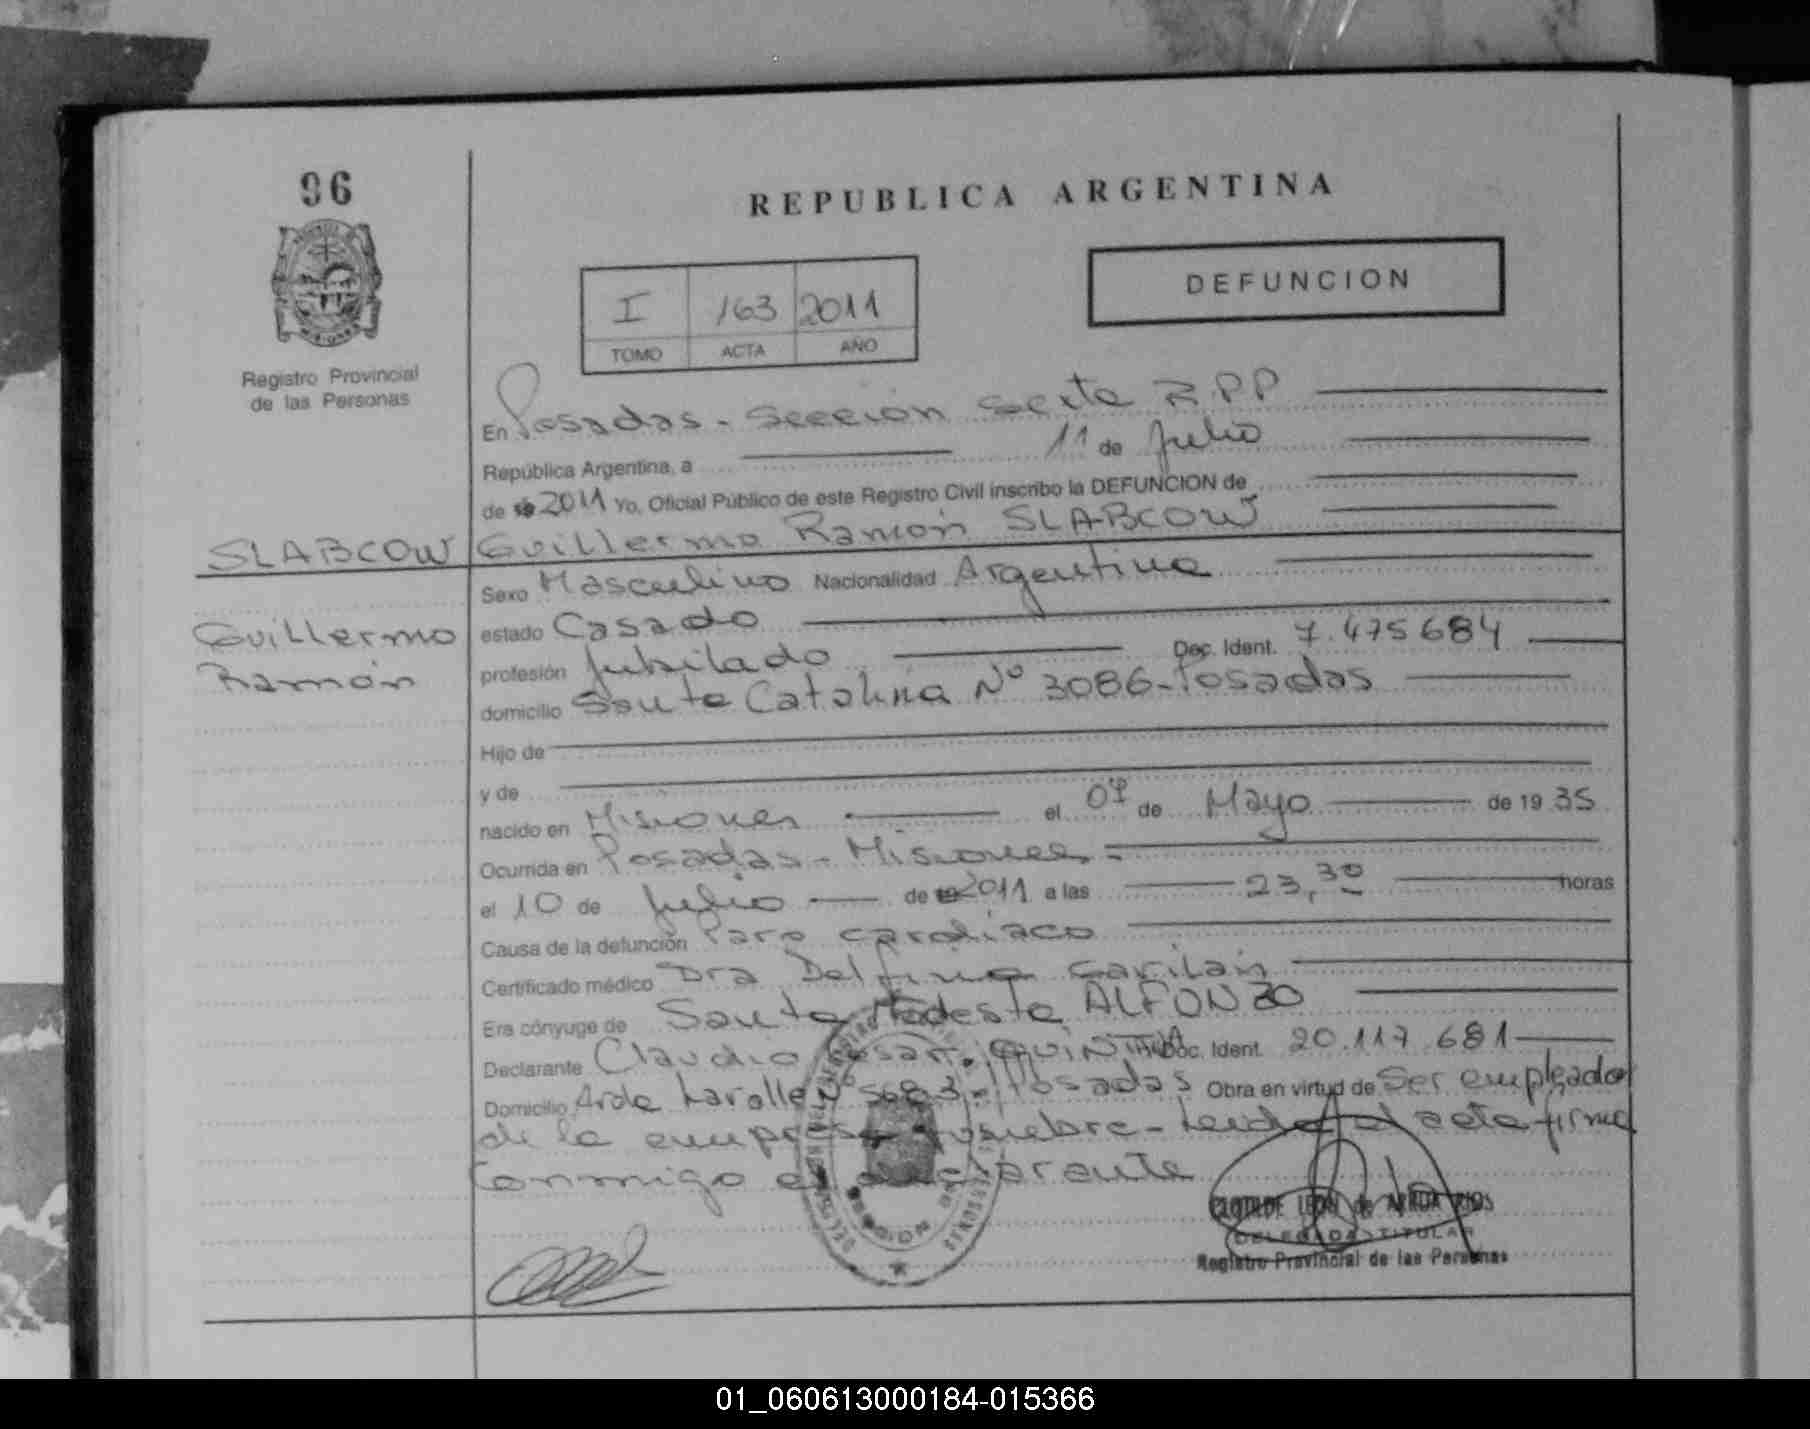 96
REPUBLICA ARGENTINA
DEFUNCION
I 163 2011
TOMO ACTA AÑO
Registro Provincial
de las Personas
En Posadas - Sección Sexta R.P.P
República Argentina, a 11 de Julio
de 2011 Yo, Oficial Público de este Registro Civil inscribo la DEFUNCION de
SLABCOW Guillermo Ramón SLABCOW
Guillermo
Ramón
Sexo Masculino Nacionalidad Argentina
estado Casado
profesión Jubilado Doc. Ident. 7.475684
domicilio Santa Catalina Nº 3086-Posadas
Hijo de
y de
nacido en Misiones el 07 de Mayo de 1935
Ocurrida en Posadas - Misiones
el 10 de Julio de 2011 a las 23,30 horas
Causa de la defunción Paro cardíaco
Certificado médico Dra Delfina Gavilán
Era cónyuge de Santa Modesta ALFONZO
Declarante Claudio Cesar QUINTANA Doc. Ident. 20.117.681
Domicilio Avda Lavalle Nº 5683 - Posadas Obra en virtud de Ser empleado
de la empresa fúnebre - Leída el acta firma
conmigo el declarante
CLOTILDE LEON de ARRUA RIOS
DELEGADA TITULAR
Registro Provincial de las Personas
01_060613000184-015366